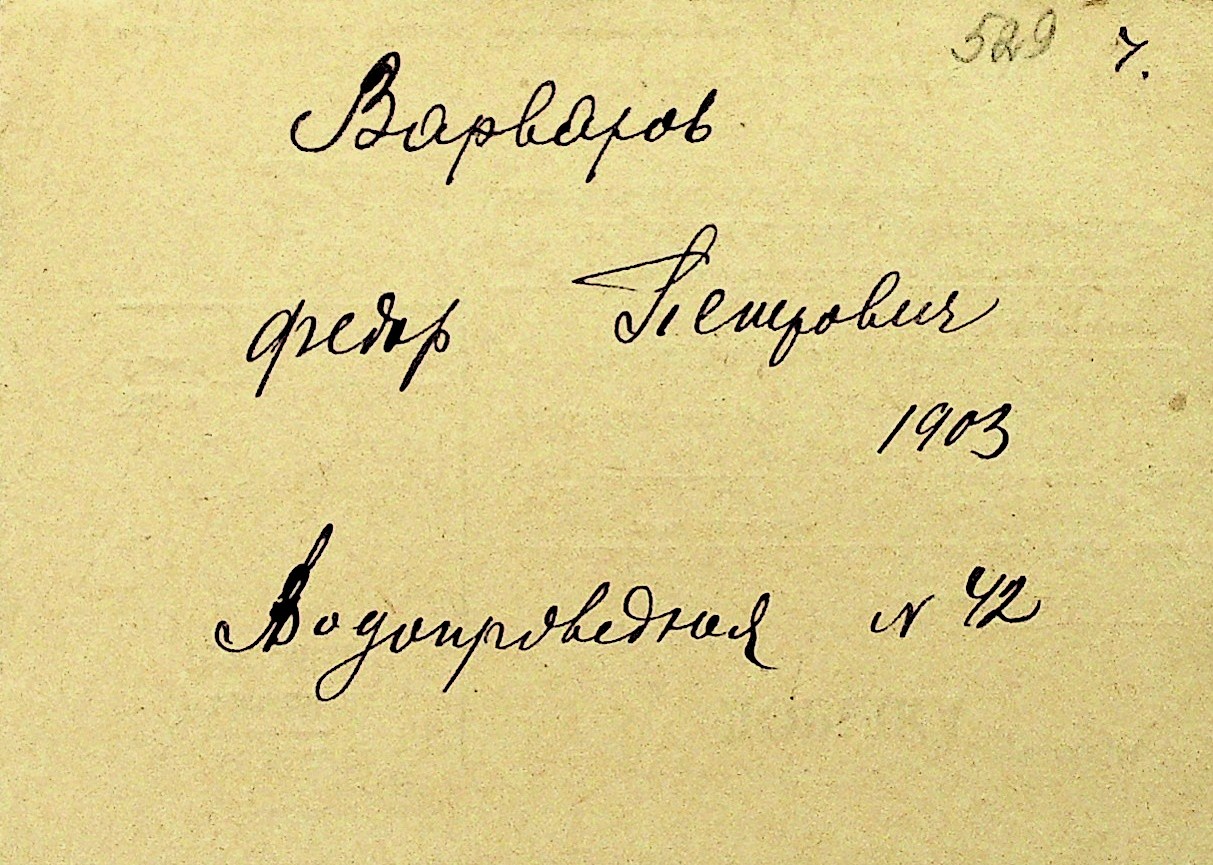 529 7.
Варваров
Федор Петрович
1903
Водопроведная N 42